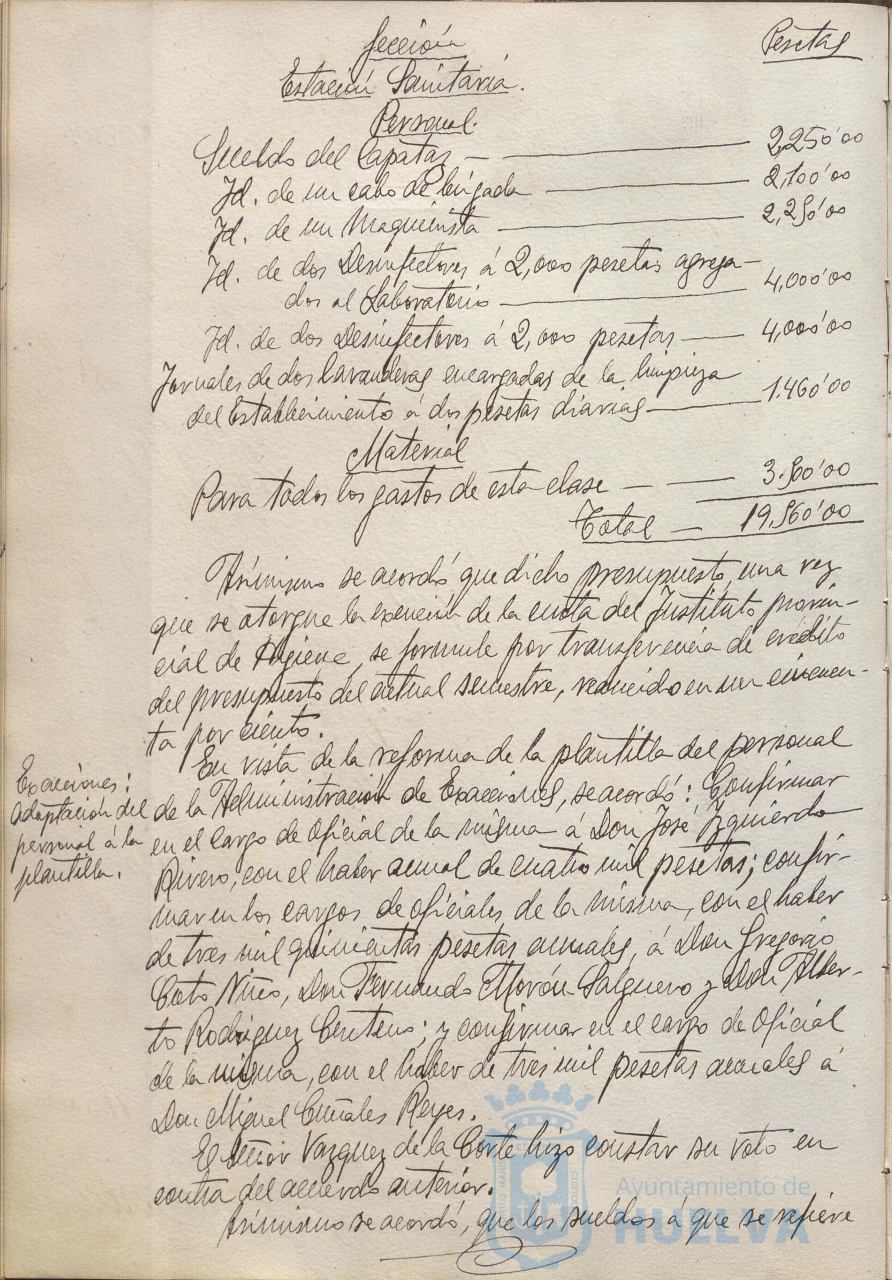 Sección
Pesetas
Estación Sanitaria.
Personal.
Sueldo del Capataz — 2,250'00
Id. de un cabo de brigada — 2,100'00
Id. de un Maquinista — 2,250'00
Id. de dos Desinfectores á 2,000 pesetas agrega-
dos al Laboratorio — 4,000'00
Id. de dos Desinfectores á 2,000 pesetas — 4,000'00
Jornales de dos lavanderas encargadas de la limpieza
del Establecimiento á dos pesetas diarias — 1.460'00
Material
Para todos los gastos de esta clase — 3.500'00
Total — 19,560'00
Asimismo se acordó que dicho presupuesto, una vez
que se otorgue la exención de la cuota del Instituto provin-
cial de Higiene, se formule por transferencia de crédito
del presupuesto del actual semestre, reducido en un cincuen-
ta por ciento.
Exacciones:
Adaptación del
personal á la
plantilla.
En vista de la reforma de la plantilla del personal
de la Administración de Exacciones, se acordó: Confirmar
en el cargo de Oficial de la misma á Don José Izquierdo
Rivero, con el haber anual de cuatro mil pesetas; confir-
mar en los cargos de oficiales de la misma, con el haber
de tres mil quinientas pesetas anuales, á Don Gregorio
Coto Niño, Don Fernando Morón Salguero y Don Alber-
to Rodríguez Centeno; y confirmar en el cargo de Oficial
de la misma, con el haber de tres mil pesetas anuales á
Don Miguel Cuñales Reyes.
El señor Vazquez de la Corte hizo constar su voto en
contra del acuerdo anterior.
Asimismo se acordó, que los sueldos á que se refiere
Ayuntamiento de
HUELVA